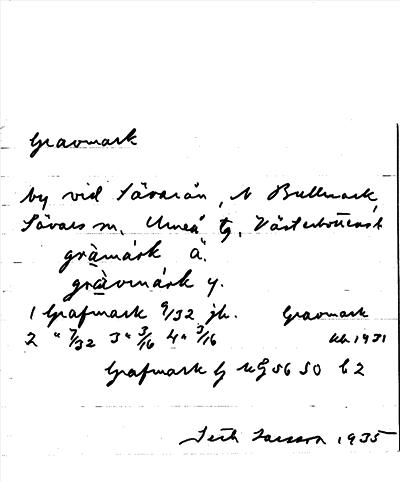 Gravmark
by vid Sävarån, N Bullmark,
Sävars sn, Umeå tg, Västerbottens l
gràmárk ä.
gràvmárk y.
1 Grafmark 9/32 jb. Gravmark
2 " 7/32 3 " 3/16 4 " 3/16 kb 1931
Grafmark G 56 50 b 2
Seth Larsson 1935